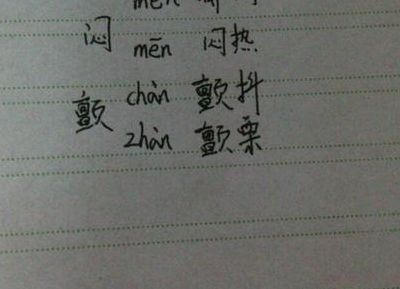 mēn
闷
mēn 闷热
颤 chàn 颤抖
zhàn 颤栗